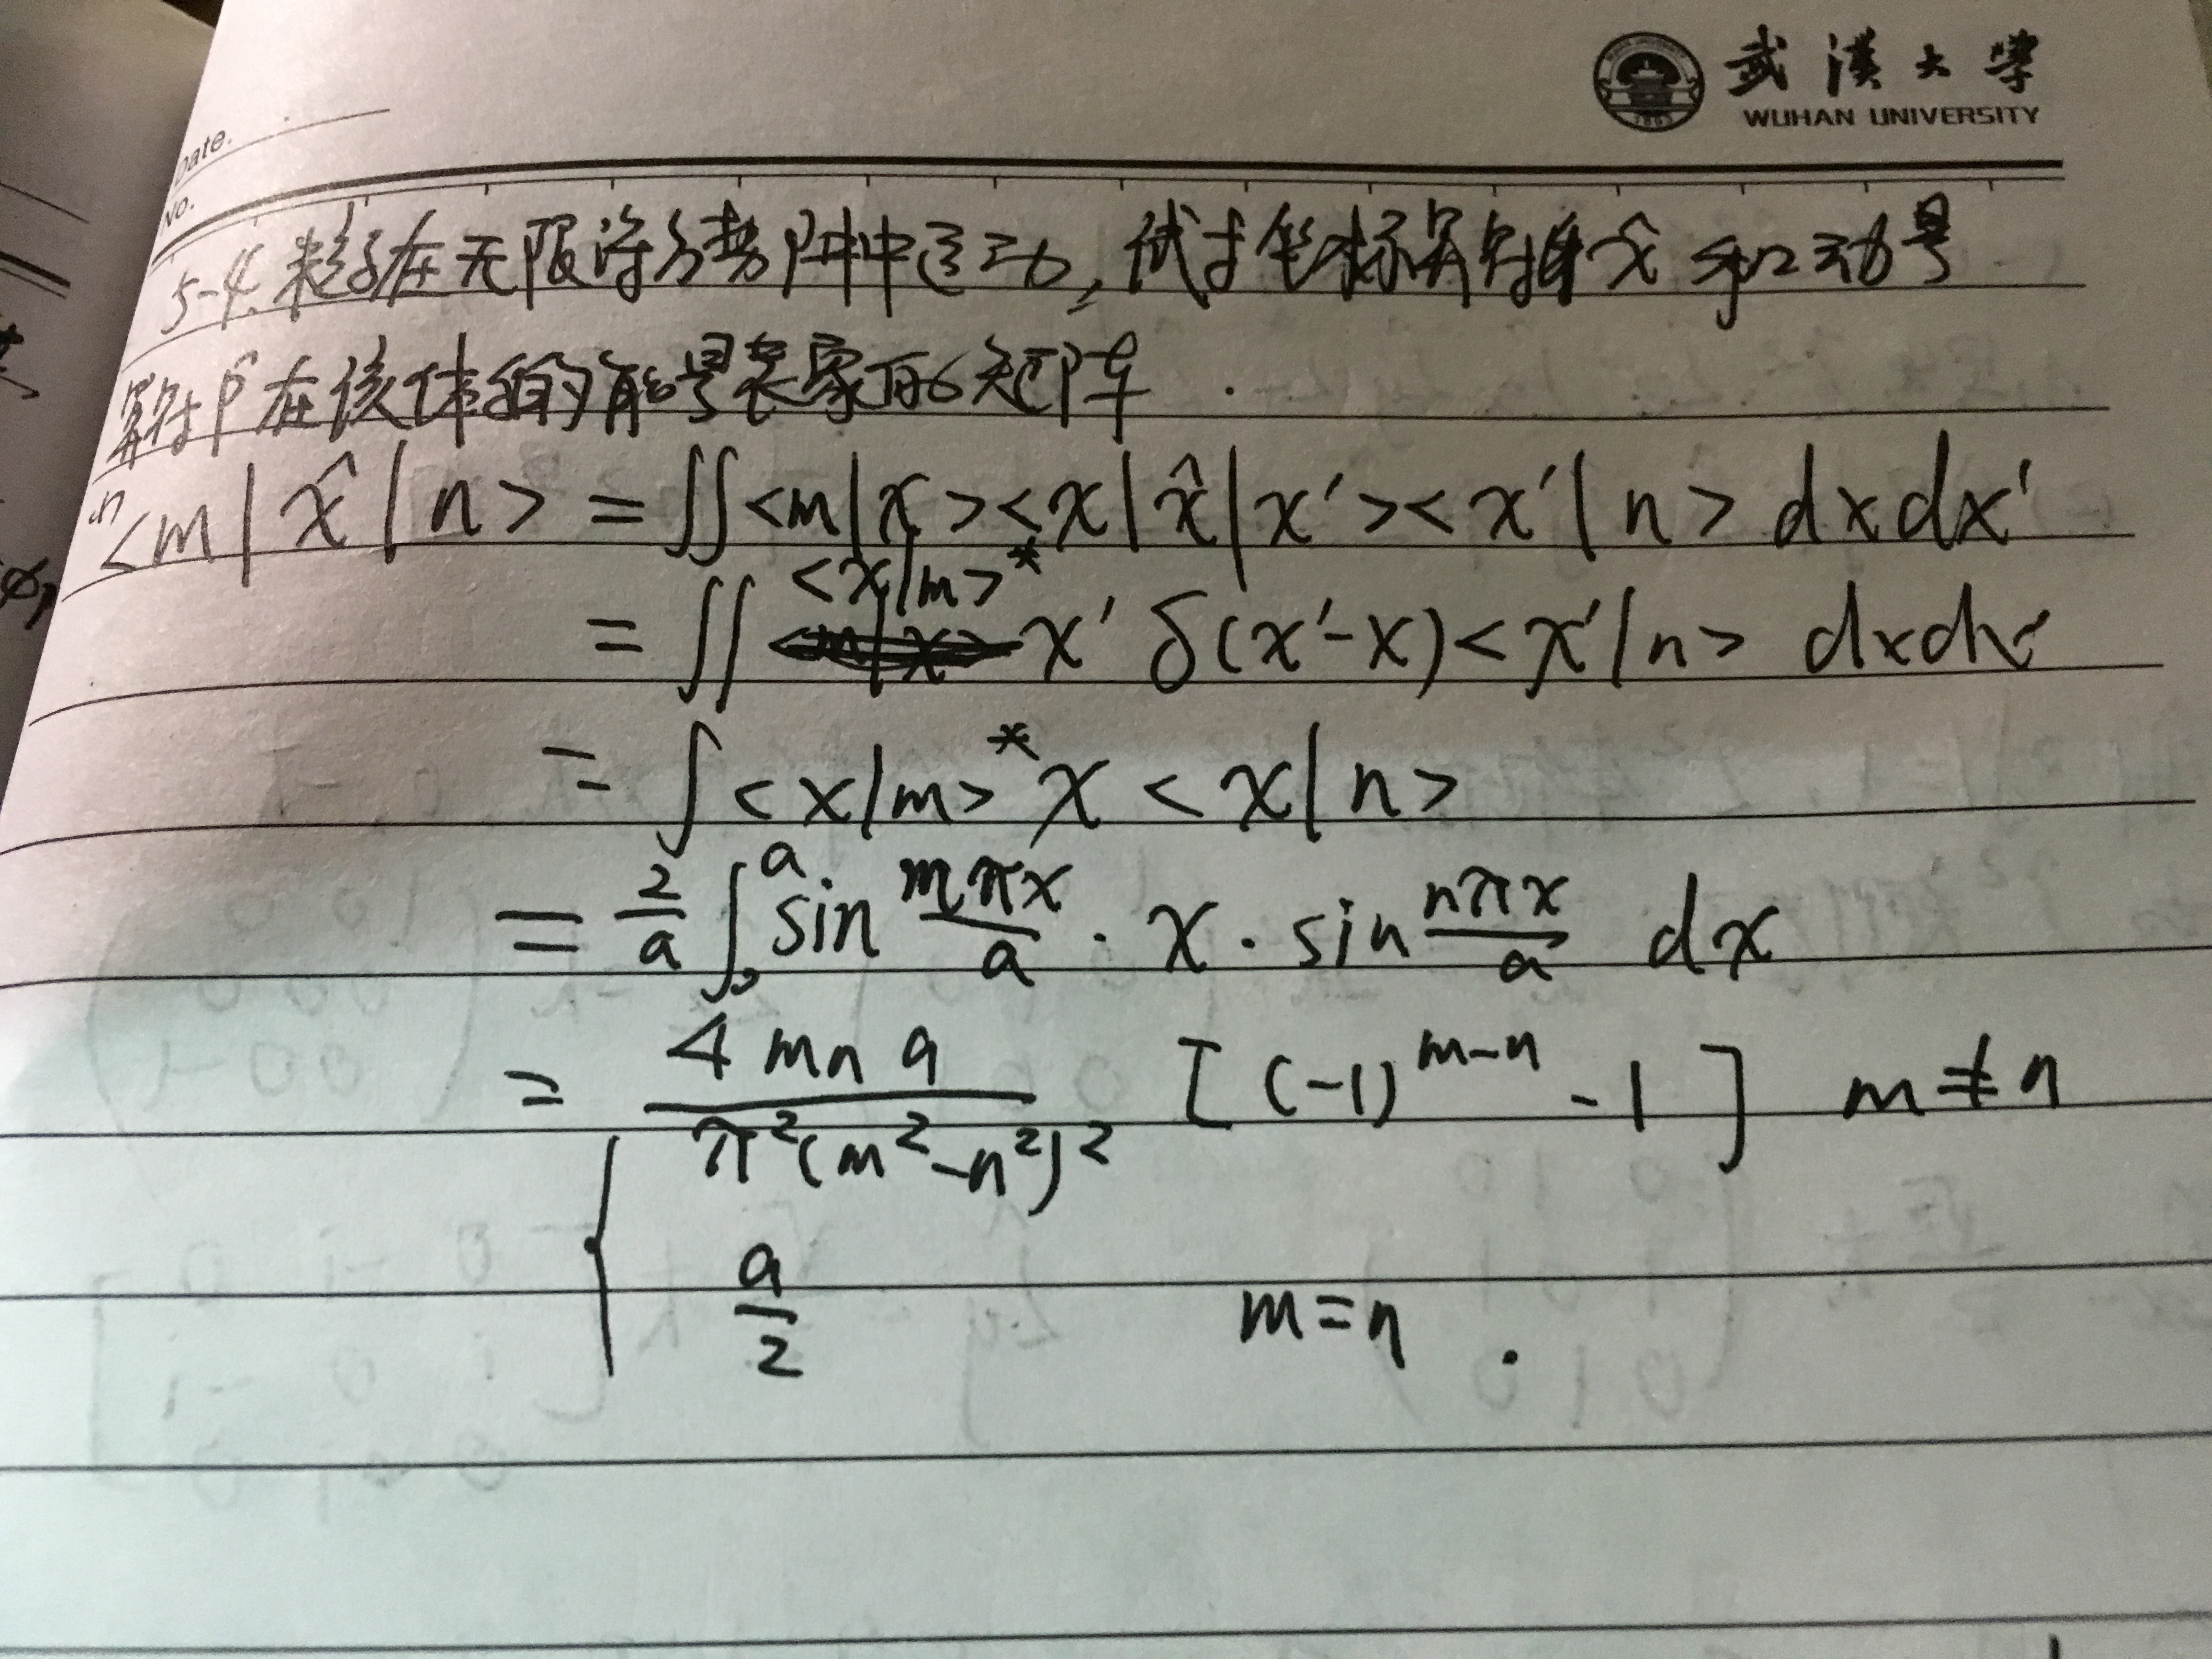 武漢大学
WUHAN UNIVERSITY
Date.
No.
5-4. 粒子在无限深方势阱中运动,试求坐标算符 x̂ 和动量
算符 p̂ 在该体系的能量表象中的矩阵.
<m|x̂|n> = ∬<m|x><x|x̂|x'><x'|n> dxdx'
= ∬ <x|m>* x' δ(x'-x)<x'|n> dxdx'
= ∫<x|m>* x <x|n>
= 2/a ∫₀ᵃ sin mπx/a · x · sin nπx/a dx
= { 4mna / π²(m²-n²)² [(-1)^(m-n) - 1] m≠n
a/2 m=n .